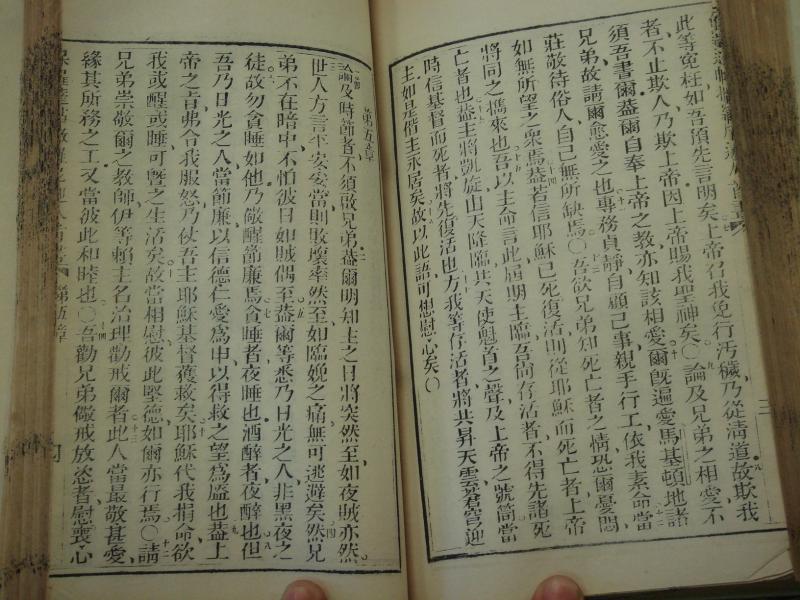 此等寃枉如吾預先言明矣上帝召我免行汚穢乃從淸道故欺我
者不止欺人乃欺上帝因上帝賜我聖神矣〇論及兄弟之相愛不
須吾書爾葢爾自奉上帝之教亦知該相愛爾旣遍愛馬基頓地諸
兄弟故請爾愈愛之也專務貞靜自顧己事親手行工依我素命當
莊敬待俗人自己無所缺焉〇吾欲兄弟知死亡者之情恐爾憂悶
如無所望之衆焉葢若信耶穌已死復活則從耶穌而死亡者上帝
將同之攜來也吾以主命言此屆期主臨吾尙存活者不得先諸死
亡者也葢主將凱旋由天降臨共天使魁首之聲及上帝之號筒當
時信基督而死者將先復活也方我等存活者將共昇天雲霄迎
主如是偕主永居矣故以此語可想慰心矣〇
第五章
論及時節者不須啟兄弟葢爾明知主之日將突然至如夜賊亦然
世人方言平安妥當則敗壞率然至如臨娩之痛無可逃避矣然兄
弟不在暗中不怕彼日如賊偶至葢爾等悉乃日光之人非黑夜之
徒故勿貪睡如他乃儆醒節廉焉貪睡者夜睡也酒醉者夜醉也但
吾乃日光之人當節廉以信德仁愛爲甲以得救之望爲盔也葢上
帝之旨弗令我服怒乃仗吾主耶穌基督獲救矣耶穌代我捐命欲
我或醒或睡可曁之生活矣故當相慰彼此堅德如爾亦行焉〇請
兄弟崇敬爾之教師伊等賴主名治理勸戒爾者此人當最敬甚愛
緣其所務之工又當彼此和睦也〇吾勸兄弟儆戒放恣者慰喪心